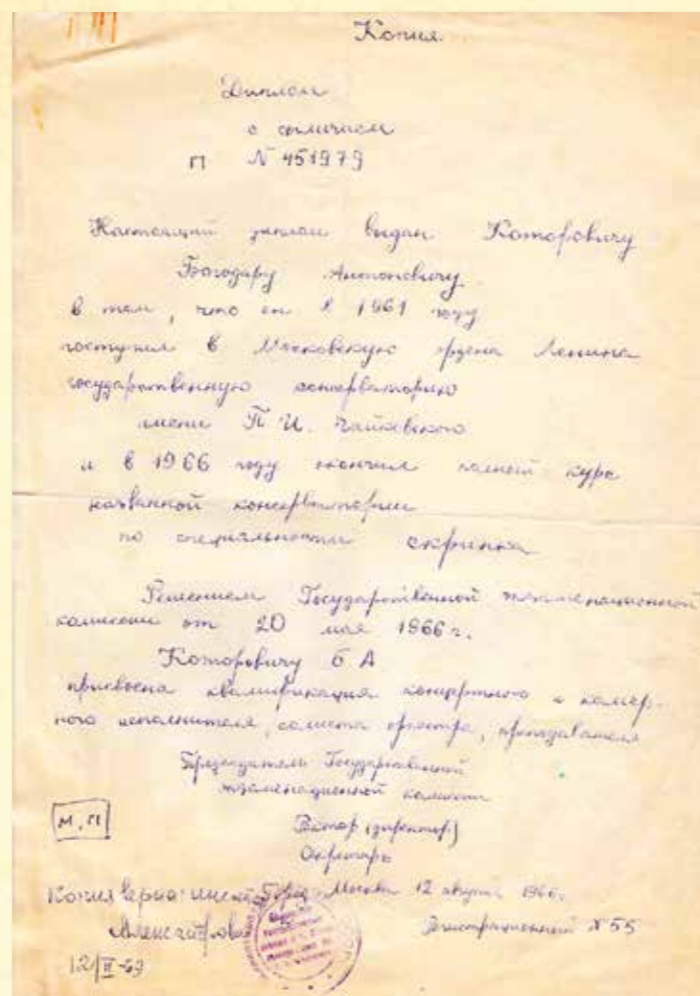 Копия.
Диплом
с отличием
П N 451979
Настоящий диплом выдан Которовичу
Богодару Антоновичу
в том, что он в 1961 году
поступил в Московскую ордена Ленина
государственную консерваторию
имени П. И. Чайковского
и в 1966 году окончил полный курс
названной консерватории
по специальности скрипка
Решением Государственной экзаменационной
комиссии от 20 мая 1966 г.
Которовичу Б А
присвоена квалификация концертного и камер-
ного исполнителя, солиста оркестра, преподавателя
Председатель Государственной
экзаменационной комиссии
М. П
Ректор (директор)
Секретарь
Копия верна: Город Москва 12 августа 1966г.
Регистрационный N 55